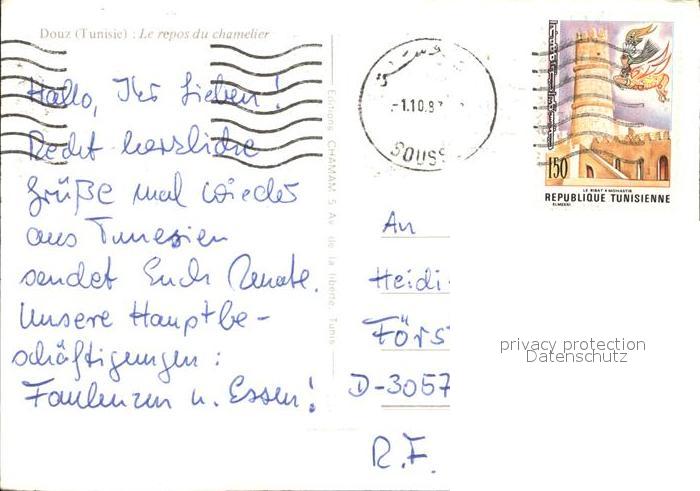 Douz (Tunisie) : Le repos du chamelier
Hallo, Ihr Lieben!
Recht herzliche
Grüße mal wieder
aus Tunesien
sendet Euch Renate.
Unsere Hauptbe-
schäftigungen:
Faulenzen u. Essen!
Editions CHAMAM 5 Av. de la liberté, Tunis
-1.10.8
SOUSS
150
LE RIBAT MONASTIR
REPUBLIQUE TUNISIENNE
ELMEKKI
An
Heidi
Förs
D-3057
R.F.
privacy protection
Datenschutz